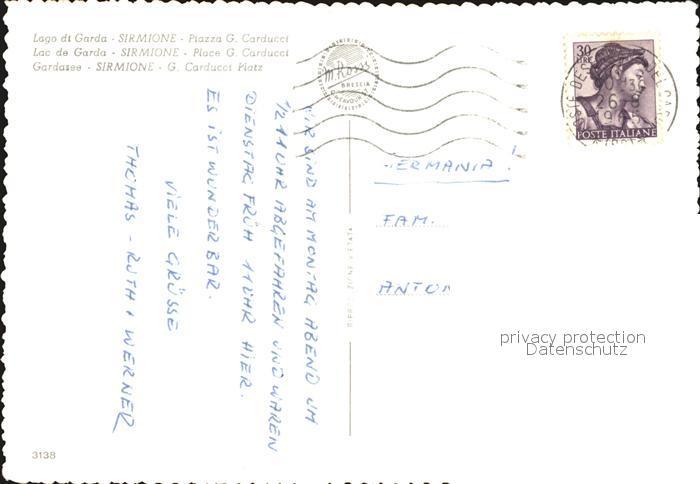 Lago di Garda - SIRMIONE - Piazza G. Carducci
Lac de Garda - SIRMIONE - Place G. Carducci
Gardasee - SIRMIONE - G. Carducci Platz
BRESCIA
30
LIRE
POSTE ITALIANE
WIR SIND AM MONTAG ABEND UM
1/2 11 UHR ABGEFAHREN UND WAREN
DIENSTAG FRÜH 11 UHR HIER.
ES IST WUNDERBAR.
VIELE GRÜSSE
THOMAS - RUTH + WERNER
GERMANIA!
FAM.
ANTON
privacy protection
Datenschutz
3138